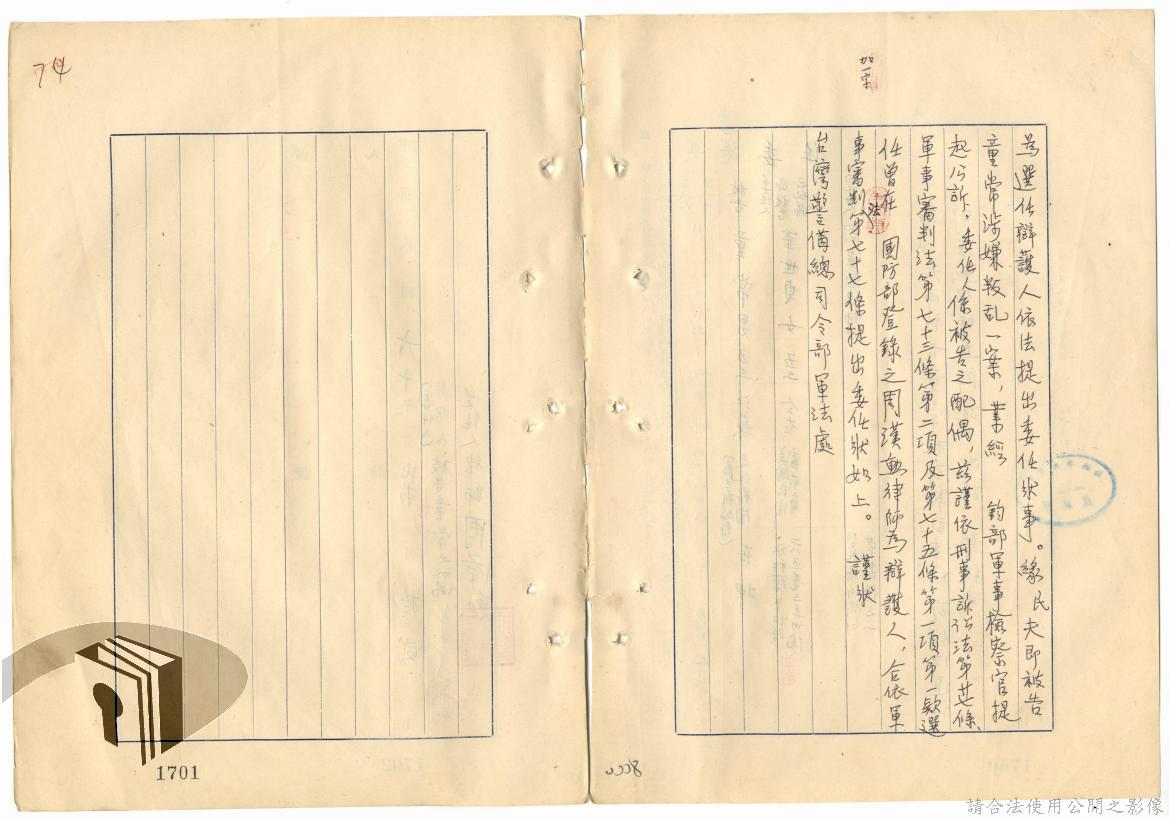 加一字
為選任辯護人依法提出委任狀事。緣民夫即被告
童常涉嫌叛乱一案，業經　鈞部軍事檢察官提
起公訴，委任人係被告之配偶，茲謹依刑事訴訟法第廿七條、
軍事審判法第七十三條第二項及第七十五條第一項第一款選
任曾在　國防部登錄之周漢勳律師為辯護人，合依軍
事審判法第七十七條提出委任狀如上。　謹狀
台灣警備總司令部軍法處
74
1701
請合法使用公開之影像